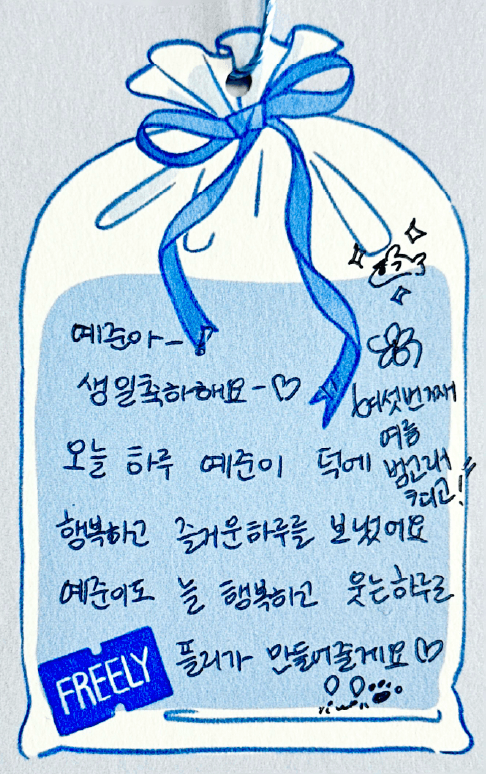 예준아~
생일축하해요~♡
오늘 하루 예준이 덕에
행복하고 즐거운하루를 보냈어요
예준이도 늘 행복하고 웃는하루로
플리가 만들어줄게요♡
여섯번째
여름
범고래
최고!
FREELY